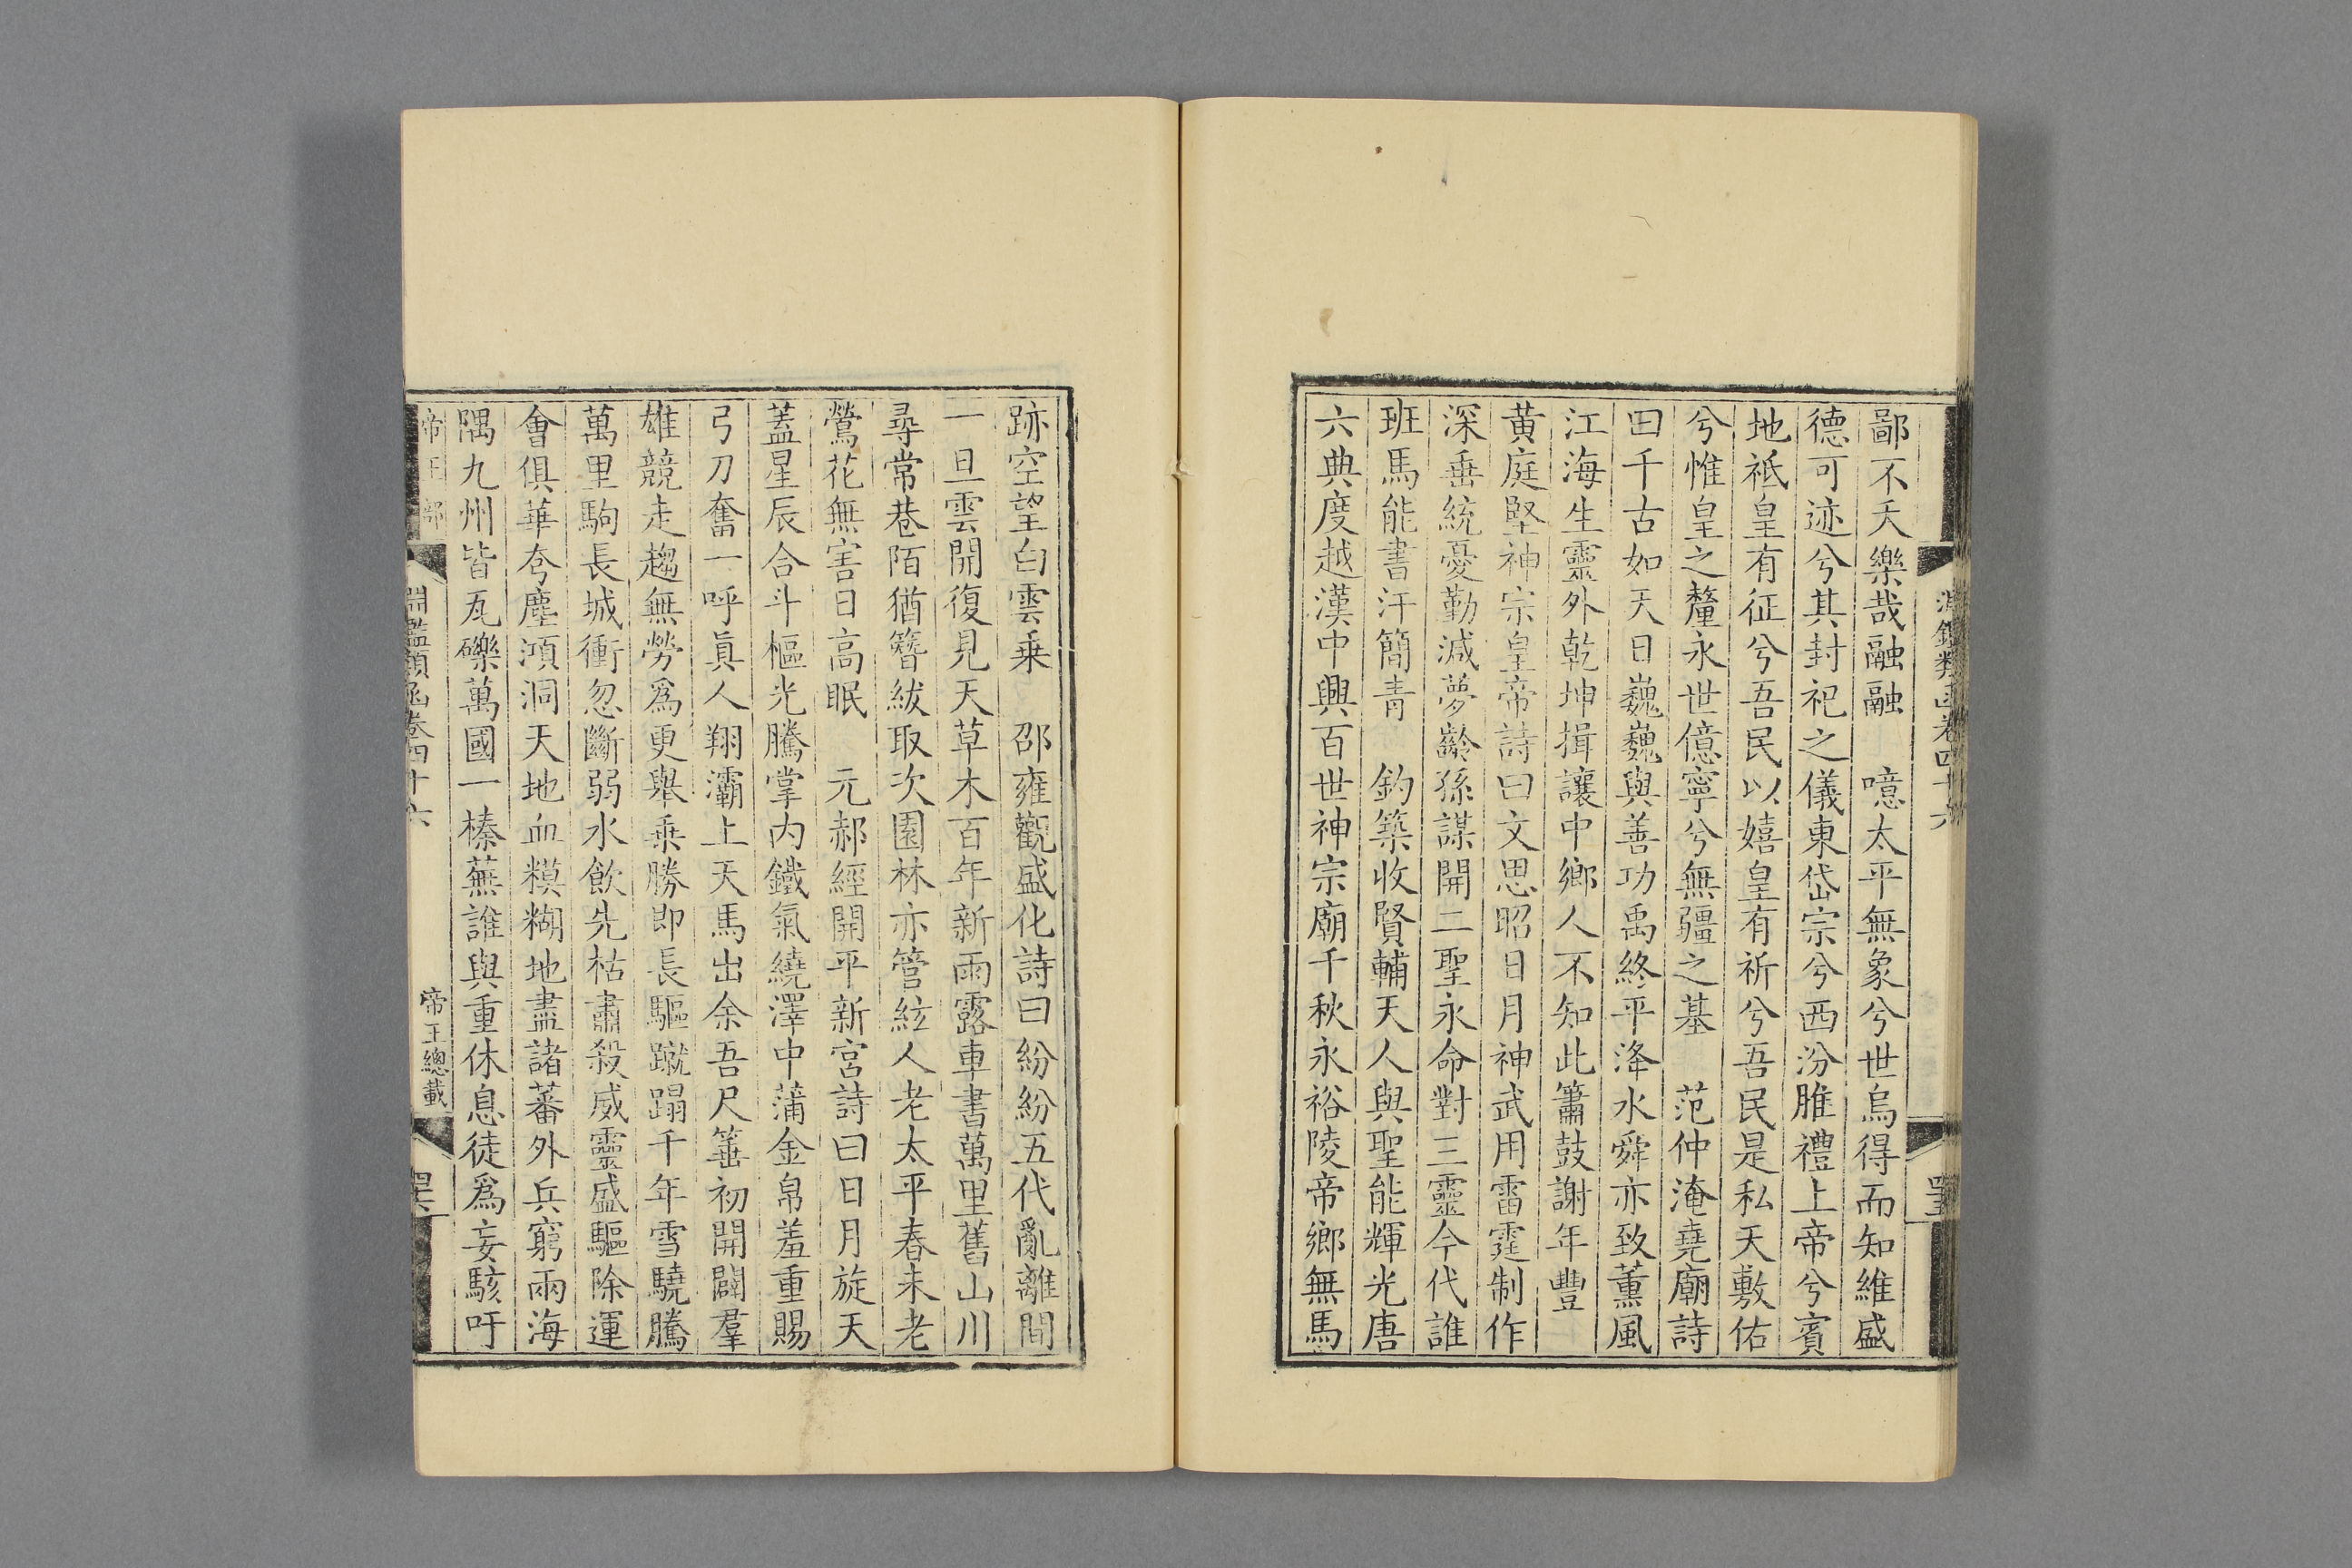 鄙不夭樂哉融融　噫太平無象兮世烏得而知維盛
德可迹兮其封祀之儀東岱宗兮西汾脽禮上帝兮賓
地祗皇有征兮吾民以嬉皇有祈兮吾民是私天敷佑
兮惟皇之釐永世億寧兮無疆之基　范仲淹堯廟詩
曰千古如天日巍巍與善功禹終平洚水舜亦致薰風
江海生靈外乾坤揖讓中鄉人不知此簫鼓謝年豐
黃庭堅神宗皇帝詩曰文思昭日月神武用雷霆制作
深垂統憂勤減夢齡孫謀開二聖永命對三靈今代誰
班馬能書汗簡青　釣築收賢輔天人與聖能輝光唐
六典度越漢中興百世神宗廟千秋永裕陵帝鄉無馬
跡空望白雲乗　邵雍觀盛化詩曰紛紛五代亂離間
一旦雲開復見天草木百年新雨露車書萬里舊山川
尋常巷陌猶簪紱取次園林亦管絃人老太平春未老
鶯花無害日高眠　元郝經開平新宮詩曰日月旋天
蓋星辰合斗樞光騰掌內鐵氣繞澤中蒲金帛羞重賜
弓刀奮一呼眞人翔灞上天馬出余吾尺箠初開闢羣
雄競走趨無勞爲更舉乗勝即長驅蹴蹋千年雪驍騰
萬里駒長城衝忽斷弱水飲先枯肅殺威靈盛驅除運
會俱華夸塵澒洞天地血糢糊地盡諸蕃外兵窮兩海
隅九州皆瓦礫萬國一榛蕪誰與重休息徒爲妄駭吁
帝王部　淵鑑類函卷四十六　帝王總載